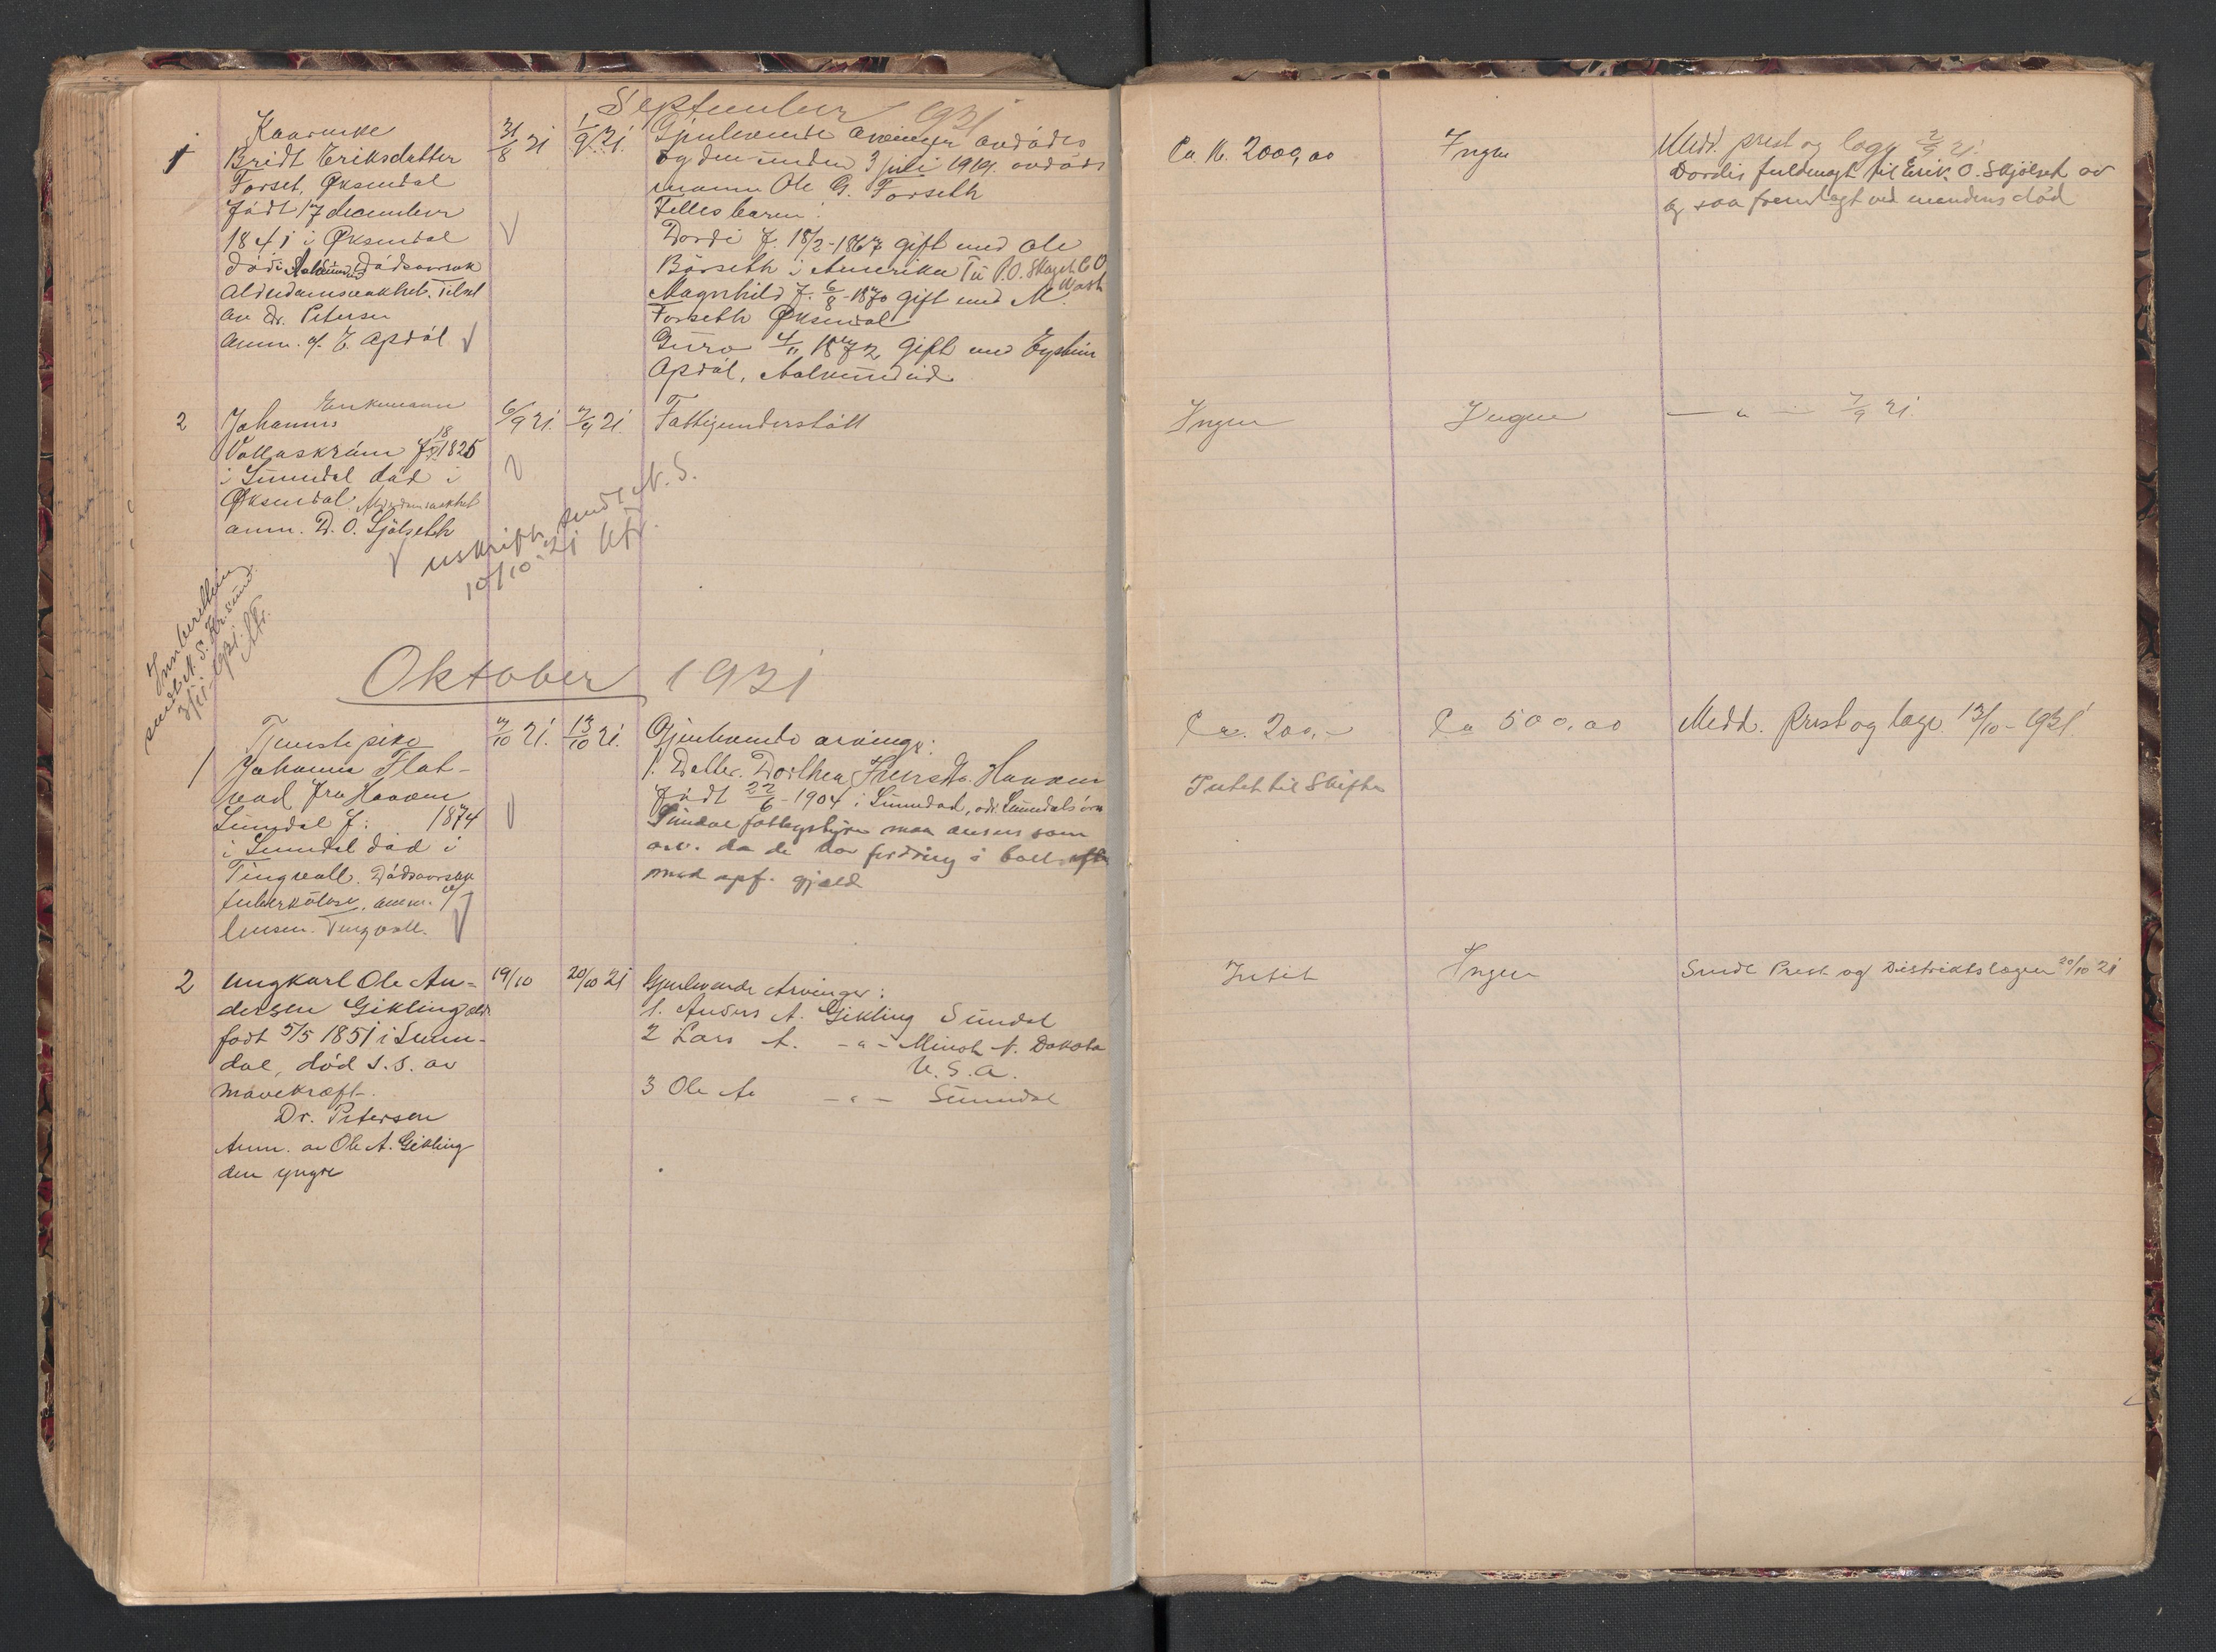 September 1921
1
Kaarenke
Bridt Eriksdatter
Forset, Øksendal
Født 17 december
1841 i Øksendal
død i Aalvundeid Dødsaarsak
Alderdomssvakhet. Tilset
av Dr. Petersen
Anm. af E. Apdøl
31/8 21
1/9 21.
Gjenlevende arvinger avdødes
og den under 3 juli 1919. avdøds
mann Ole G. Forseth
Felles barn:
Dordi f. 18/2-1867 gift med Ole
Børseth i Amerika P.O. Skagit CO
Wash
Magnhild f. 6/8-1870 gift med M.
Forseth Øksendal
Guro 4/11 1872 gift med Eystein
Apdøl, Aalvundeid
Ca. Kr. 2000,00
Ingen
Medd. prest og læge 2/9 21.
Dordis fuldmagt til Erik O. Skjølset
saa fremlagt ved mandens død
2
Enkemann
Johannes
Vollaskråm f. 1825
i Sunndal død i
Øksendal. Alderdomssvakhet
anm. D. O. Sjølseth
6/9 21.
7/9 21.
Fattigunderstøtt
Ingen
Ingen
— " — 7/9 21.
uskrift sendt N. S.
10/10 21
Innberetten
sendt N. S. Kr.sund
3/11 1921.
Oktober 1921
1
Tjenestepike
Johanna Flat-
vad fra Hoaven
Sundal f: 1874
i Sunndal død i
Tingvoll. Dødsaarsak
tuberkulose. anm. af
lensm. Tingvoll.
7/10 21.
13/10 21.
Gjenlevende arvinge:
1. Datter. Dorthea Hansen
født 22/6-1904 i Sunndal, adr. Sunndalsøra
Sundal fattigstyre maa ansees som
arv. da de har fordring i boet
med opf. gjæld
Ca. 200,-
Ca 500,00
Medd. Prest og læge 13/10-1921.
Intet til Skifte
2
Ungkarl Ole An-
dersen Gikling eldr
født 5/5 1851 i Sunn-
dal, død s.s. av
mavekræft.
Dr. Petersen
Anm. av Ole A. Gikling
den yngre
19/10
20/10 21
Gjenlevende Arvinger:
1. Anders A. Gikling Sundal
2 Lars A. -"- Minot N. Dakota
U.S.A.
3 Ole A. -"- Sunndal
Intet
Ingen
Sendt Prest og Distriktslægen 20/10 21